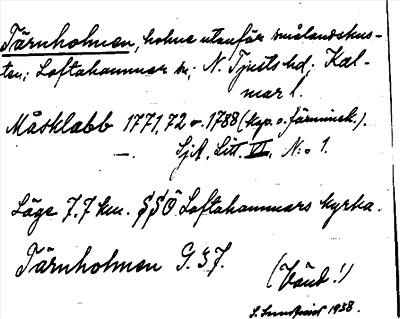 Tärnholmen, holme utanför smålandskus-
ten; Loftahammar sn; N. Tjusts hd; Kal-
mar l.
Måsklabb 1771, 72 o. 1788 (kop. o. förminsk.).
—. SjA, Litt. VI, N:o 1.
Läge 7,7 km. SSÖ Loftahammars kyrka.
Tärnholmen G.S.J.
(Vänd!)
1958.